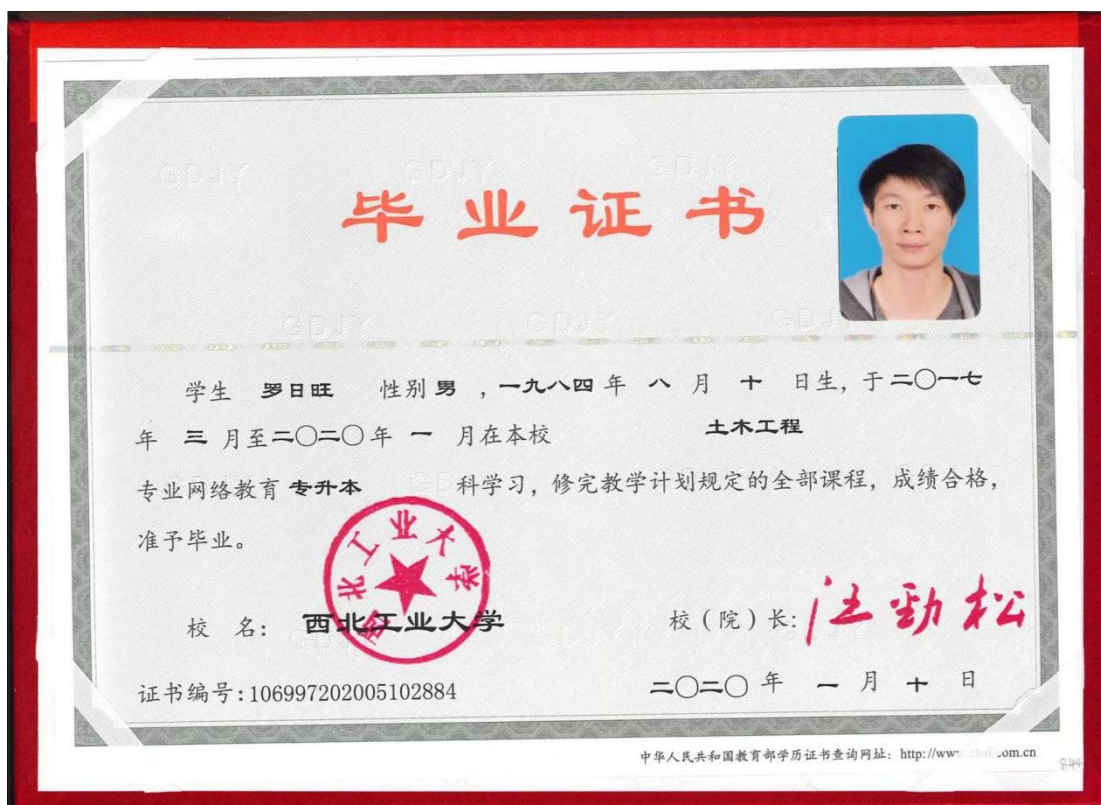 GDJY GDJY GDJY
毕业证书
GDJY GDJY GDJY
学生 罗日旺 性别 男 , 一九八四 年 八 月 十 日生, 于 二〇一七
年 三 月至 二〇二〇 年 一 月在本校 土木工程
专业网络教育 专升本 科学习, 修完教学计划规定的全部课程, 成绩合格,
准予毕业。
西北工业大学
校 名: 西北工业大学 校(院)长: 汪劲松
证书编号:106997202005102884 二〇二〇 年 一 月 十 日
中华人民共和国教育部学历证书查询网址: http://www.
.com.cn